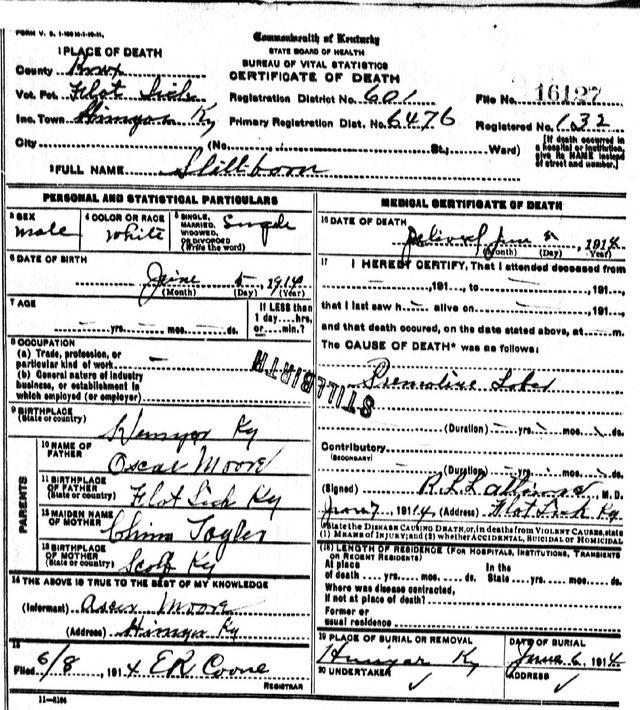 FORM V. S. 1-
Commonwealth of Kentucky
STATE BOARD OF HEALTH
BUREAU OF VITAL STATISTICS
CERTIFICATE OF DEATH
1 PLACE OF DEATH
County Knox
Vot. Pct. Flat Lick
Inc. Town Himyar Ky
Registration District No. 601
Primary Registration Dist. No. 6476
File No. 16127
Registered No. 132
City (No. St.; Ward)
[If death occurred in a hospital or institution, give its NAME instead of street and number.]
2 FULL NAME Stillborn
PERSONAL AND STATISTICAL PARTICULARS
3 SEX
male
4 COLOR OR RACE
White
5 SINGLE, MARRIED, WIDOWED, OR DIVORCED (Write the word)
Single
6 DATE OF BIRTH
June 5 1914
(Month) (Day) (Year)
7 AGE
yrs. mos. ds.
If LESS than 1 day....hrs. or....min.?
8 OCCUPATION
(a) Trade, profession, or particular kind of work
(b) General nature of industry business, or establishment in which employed (or employer)
STILLBIRTH
9 BIRTHPLACE
(State or country)
Himyar Ky
PARENTS
10 NAME OF FATHER
Oscar Moore
11 BIRTHPLACE OF FATHER (State or country)
Flat Lick Ky
12 MAIDEN NAME OF MOTHER
13 BIRTHPLACE OF MOTHER (State or country)
Ky
14 THE ABOVE IS TRUE TO THE BEST OF MY KNOWLEDGE
(Informant) Oscar Moore
(Address) Himyar Ky
15
Filed 6/8, 1914 E R
REGISTRAR
11-5164
MEDICAL CERTIFICATE OF DEATH
16 DATE OF DEATH
June 5, 1914
(Month) (Day) (Year)
17 I HEREBY CERTIFY, That I attended deceased from
, 191 , to , 191 ,
that I last saw h alive on , 191 ,
and that death occured, on the date stated above, at m.
The CAUSE OF DEATH* was as follows:
(Duration) yrs. mos. ds.
Contributory
(SECONDARY)
(Duration) yrs. mos. ds.
(Signed) R. L. M. D.
June 7 1914 (Address) Flat Lick Ky
*State the DISEASE CAUSING DEATH, or, in deaths from VIOLENT CAUSES, state
(1) MEANS OF INJURY; and (2) whether ACCIDENTAL, SUICIDAL OR HOMICIDAL
(18) LENGTH OF RESIDENCE (FOR HOSPITALS, INSTITUTIONS, TRANSIENTS OR RECENT RESIDENTS)
At place of death yrs. mos. ds. In the State yrs. mos. ds.
Where was disease contracted, if not at place of death?
Former or usual residence
19 PLACE OF BURIAL OR REMOVAL
Himyar Ky
DATE OF BURIAL
June 6, 1914
20 UNDERTAKER
ADDRESS